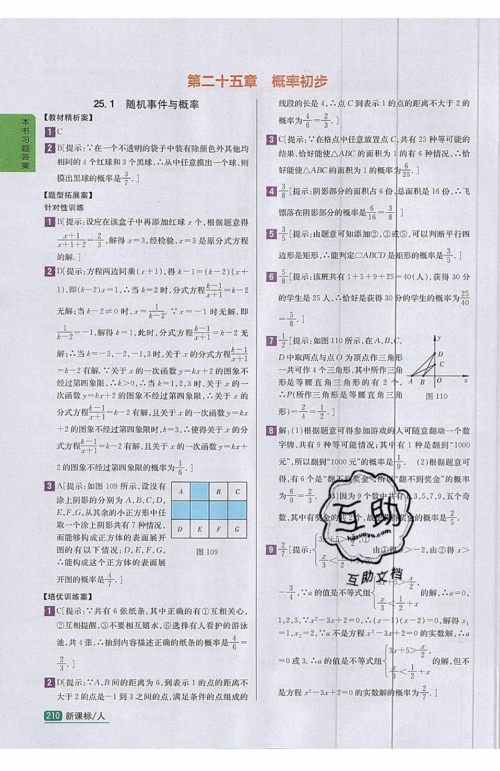 本书习题答案
第二十五章 概率初步
25.1 随机事件与概率
【教材精析案】
1 C
2 B[提示:∵在一个不透明的袋子中装有除颜色外其他均
相同的4个红球和3个黑球,∴从中任意摸出一个球,则
摸出黑球的概率是3/7.]
【题型拓展案】
针对性训练
1 B[提示:设应在该盒子中再添加红球x个,根据题意得
(x+1)/(x+1+2)=2/3,解得x=3,经检验,x=3是原分式方程
的解.]
2 D[提示:方程两边同乘(x+1),得k-1=(k-2)(x+
1),即(k-2)x=1,∴当k=2时,分式方程(k-1)/(x+1)=k-2
无解;当k-2≠0时,x=1/(k-2).∵x=-1时无解,即
1/(k-2)=-1,解得k=1,此时,分式方程(k-1)/(x+1)=k-2无
解;∴当k=-3,-2,-1,3时,关于x的分式方程(k-1)/(x+1)
=k-2有解.∵关于x的一次函数y=kx+2的图象不
经过第四象限,∴k>0,∴当k=1,2,3时,关于x的一
次函数y=kx+2的图象不经过第四象限,∴关于x的
分式方程(k-1)/(x+1)=k-2有解,且关于x的一次函数y=kx
+2的图象不经过第四象限时,k=3,∴使得关于x的分
式方程(k-1)/(x+1)=k-2有解,且关于x的一次函数y=kx
+2的图象不经过第四象限的概率为1/6.]
3 A[提示:如图109所示,设没有
涂上阴影的分别为A,B,C,D,
E,F,G,从其余的小正方形中任
取一个涂上阴影共有7种情况,
而能够构成正方体的表面展开
图的有以下情况:D,E,F,G,
∴能构成这个正方体的表面展
开图的概率是4/7.]
A B C
D E F G
图109
【培优训练案】
1 C[提示:∵共有6张纸条,其中正确的有①互相关心,
②互相提醒,③不要相互嬉水,⑥选择有人看护的游泳
池,共4张,∴抽到内容描述正确的纸条的概率是4/6=
2/3.]
2 D[提示:∵A,B间的距离为6,到表示1的点的距离不
大于2的点是-1到3之间的点,满足条件的点组成的
210 新课标/人
线段的长是4,∴点C到表示1的点的距离不大于2的
概率为4/6=2/3.]
3 C[提示:∵在格点中任意放置点C,共有25种等可能的
结果,恰好能使△ABC的面积为1的有6种情况,∴恰
好能使△ABC的面积为1的概率为6/25.]
4 3/8[提示:阴影部分的面积占6份,总面积是16份,∴飞
镖落在阴影部分的概率是6/16=3/8.]
5 3/5[提示:由题意可知添加②,③或⑤,可以判断平行四
边形是矩形,∴能判定▱ABCD是矩形的概率是3/5.]
6 5/8[提示:该班共有1+5+9+25=40(人),获得30分
的学生是25人,∴恰好是获得30分的学生的概率为25/40
=5/8.]
7 1/2[提示:如图110所示,在A,B,C,
D中取两点与点O为顶点作三角形
一共可作4个三角形,其中所作三角
形是等腰直角三角形的有2个,
∴P(所作三角形是等腰直角三角
形)=2/4=1/2.]
y
A B O x
图110
8 解:(1)根据题意可得参加游戏的人可随意翻动一个数
字牌,共有9种等可能情况;其中有1种是翻到“1000
元”,所以翻到“1000元”的概率是1/9. (2)根据题意可
得,有6个是“翻不到奖金”,所以“翻不到奖金”的概率
为6/9=2/3.
9
-3/4.∵a的值是不等式组
的解,∴a=0,
1,2,3.∵x²-3x+2=0,∴(x-1)(x-2)=0,解得x₁
=1,x₂=2.∵a不是方程x²-3x+2=0的实数解,∴a
=0或3.∴a的值是不等式组
的解,但不
是方程x²-3x+2=0的实数解的概率为2/7.]
互助
互助文档